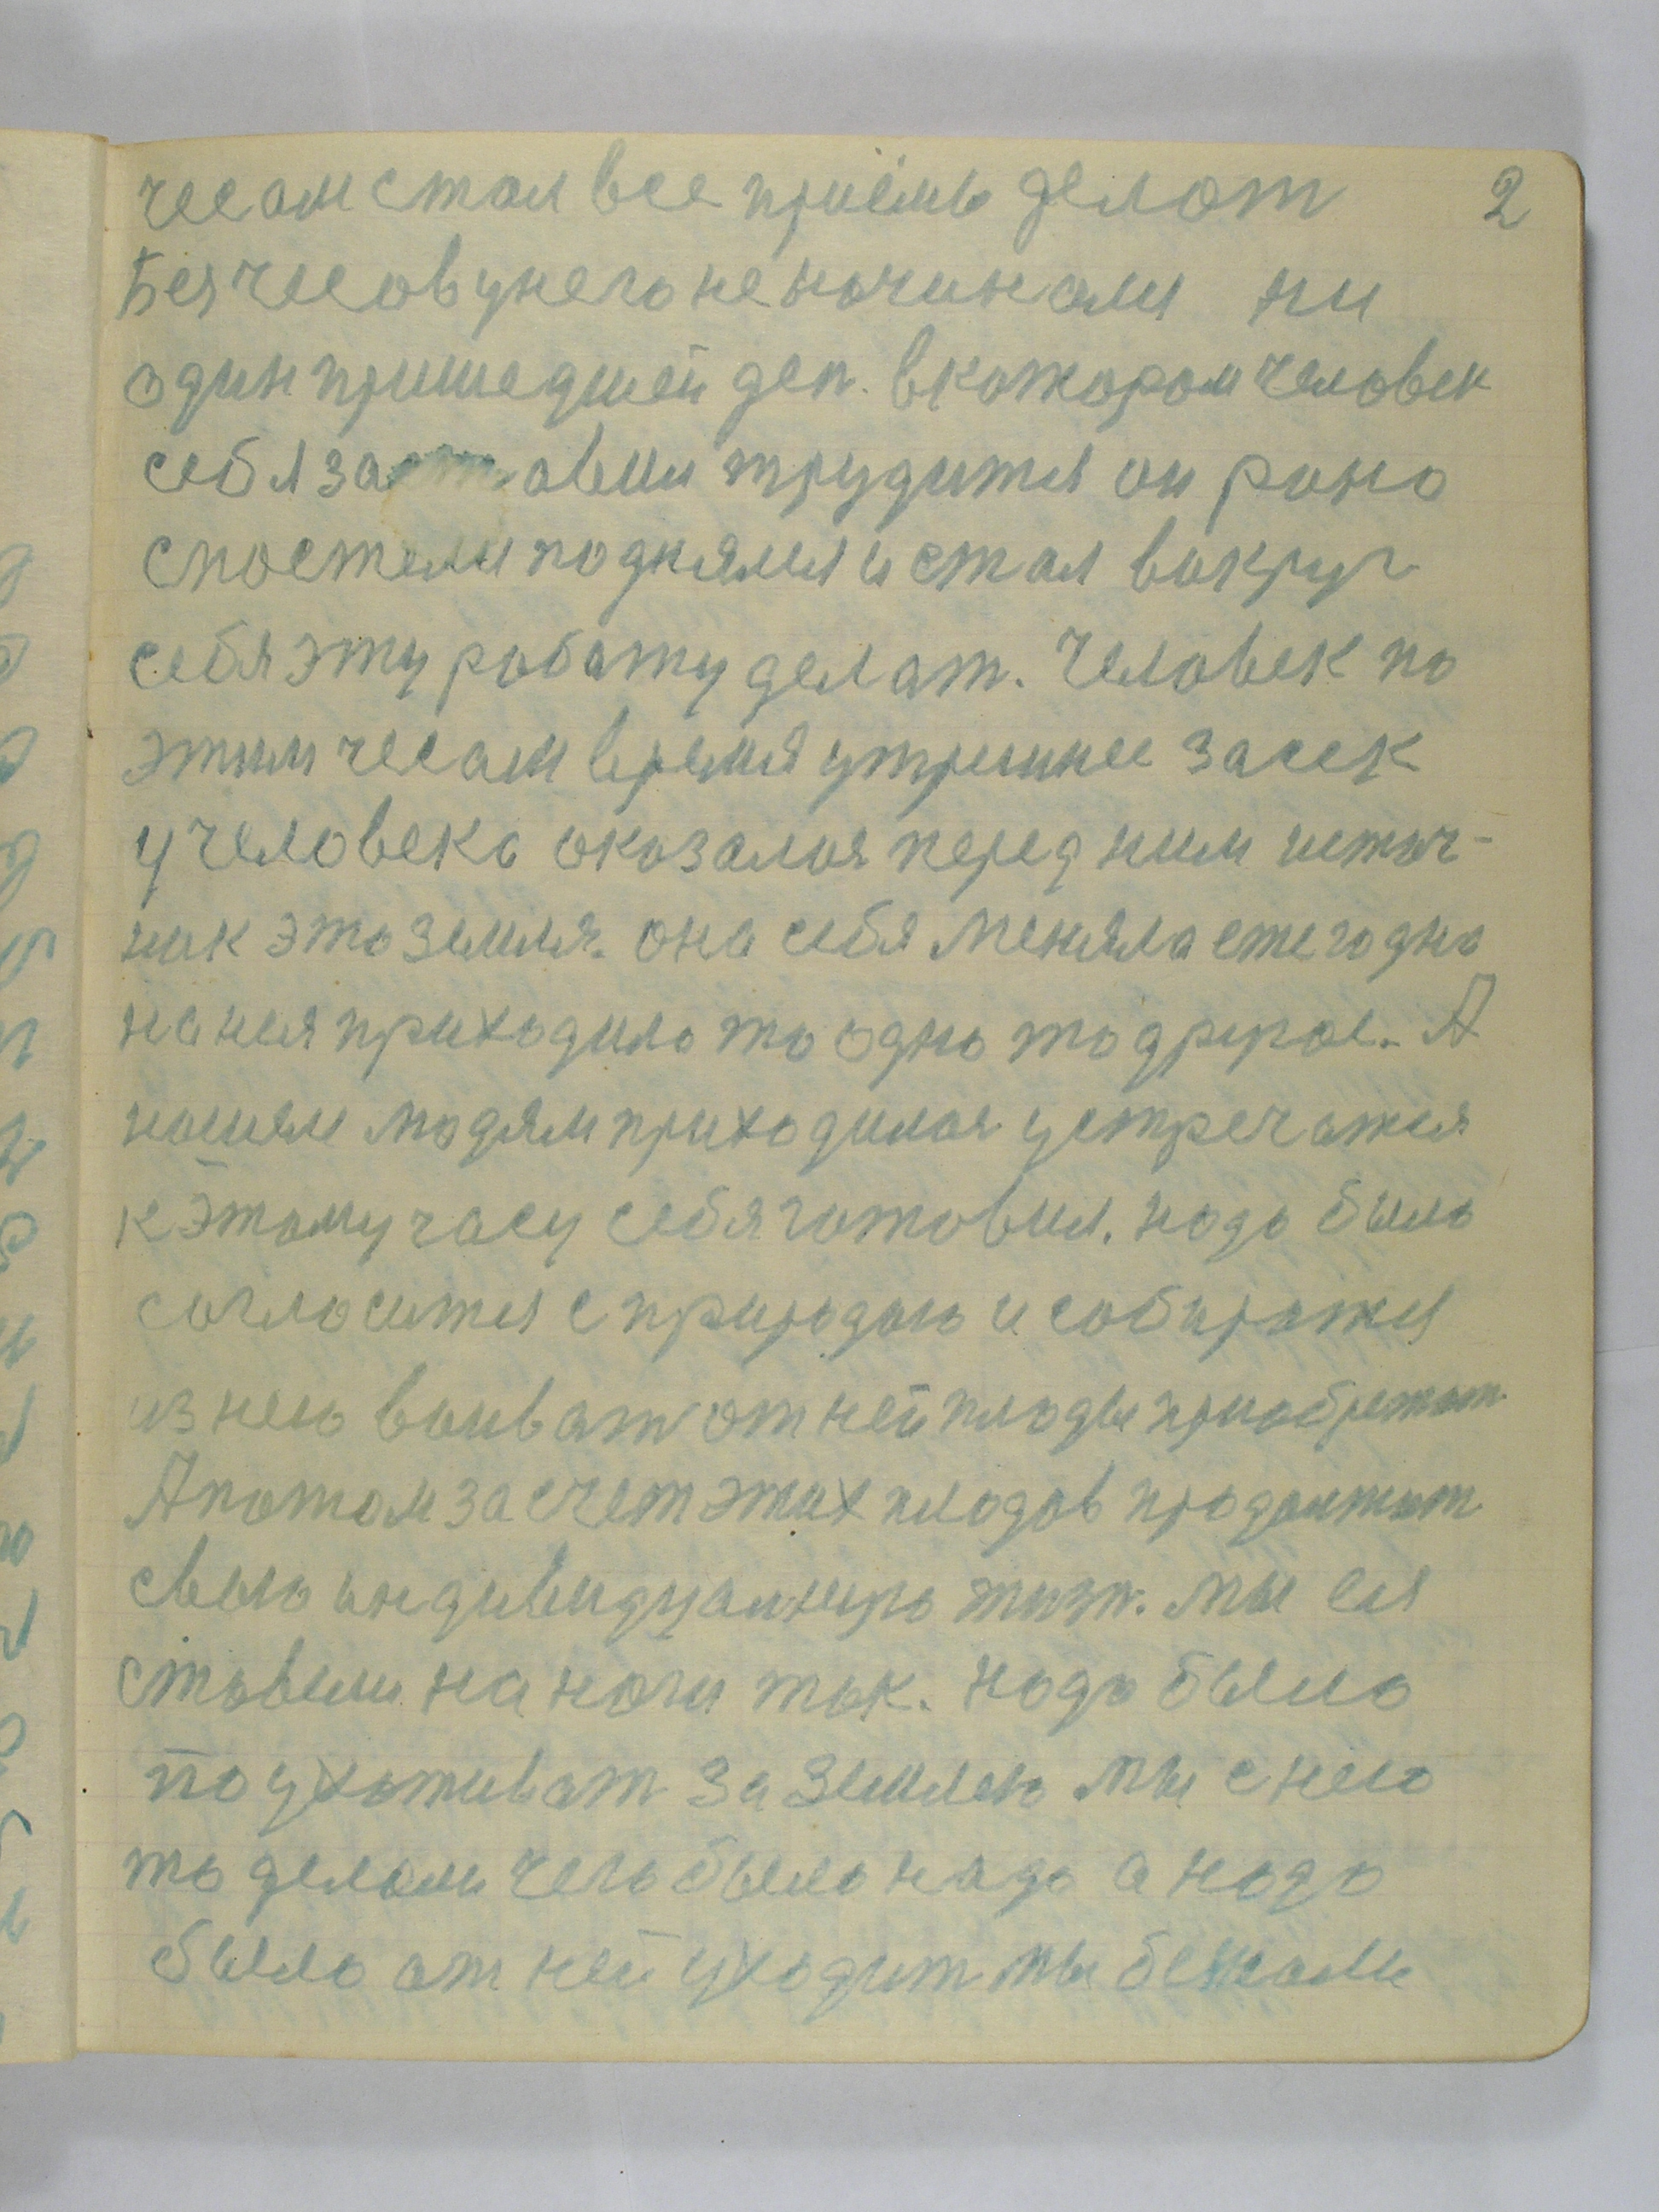 чесам стал все приёмь делат 2
Без чесов унего не начинали ни
один пришедшей ден. вкатором человек
себя заставил трудится он рано
спостели поднялся и стал вакруг
себя эту работу делат. Человек по
этим чесам время утрешнее засек
у человека оказался перед ним источ-
ник это земля. она себя меняла ежегодно
на нея приходило то одно то другое. А
нашим людям приходилос устречатся
к этому часу себя готовил. надо было
согласится с природою и собиратся
из нею воиват от ней плоды приобретат
А потом за счет этих плодов продолжат
свою индивидуалную жизн. мы ея
ставили на ноги так. надо было
поухаживат за землею мы с нею
то делали чего было надо а надо
было от ней уходит мы бежали